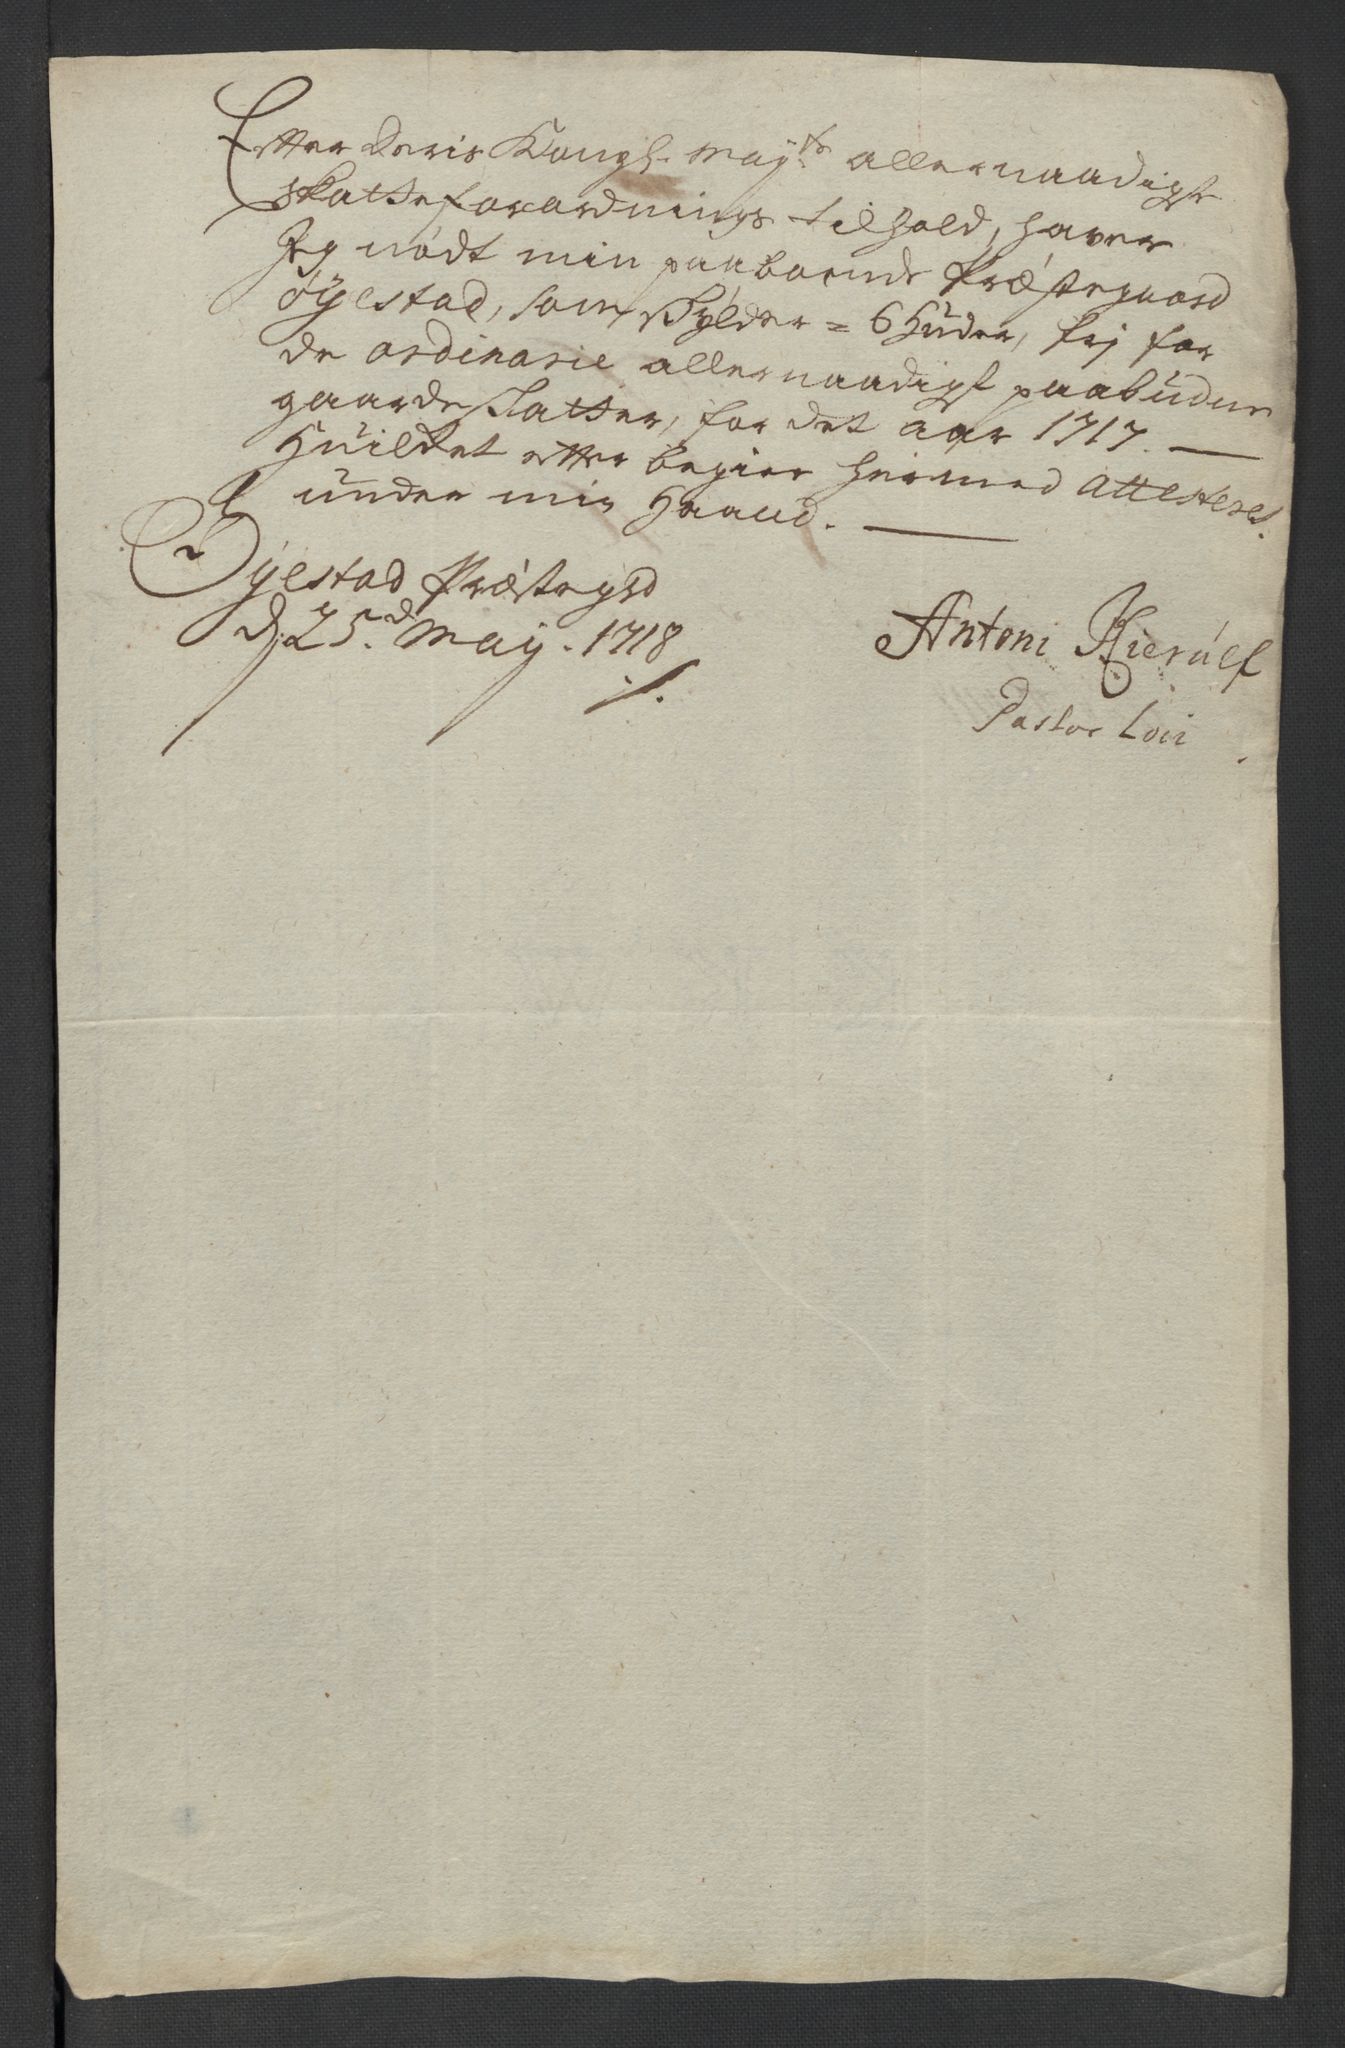 Etter Deris Kongl. May:ts allernaadigste
Skatteforordnings tilhold, haver
Jeg nødt min paaboende Præstegaard
Øyestad, som skylder = 6 Huder, frj for
de ordinarie allernaadigst paabudne
gaarde Skatter, for det aar 1717. —
Huilket etter begier hermed attesteres.
under min Haand. —
Øyestad Præstegrd
d: 25.d May. 1718
Antoni Kierúlf
Pastor Loci